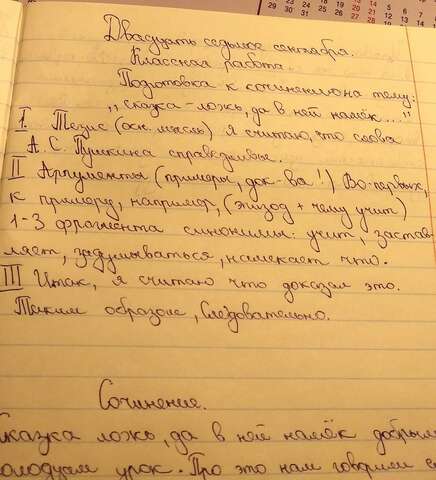 Двадцать седьмое сентября.
Классная работа.
Подготовка к сочинению на тему:
„сказка – ложь, да в ней намёк..."
I. Тезис (осн. мысль) я считаю, что слова
А. С. Пушкина справедливы.
II Аргументы (примеры, док-ва!) Во-первых,
к примеру, например, (эпизод + чему учит)
1-3 фрагмента синонимы: учит, застав-
ляет, задумываться, намекает что.
III Итак, я считаю что доказал это.
Таким образом, Следовательно.
Сочинение.
Сказка ложь, да в ней намёк добрым
молодцам урок. Про это нам говорит